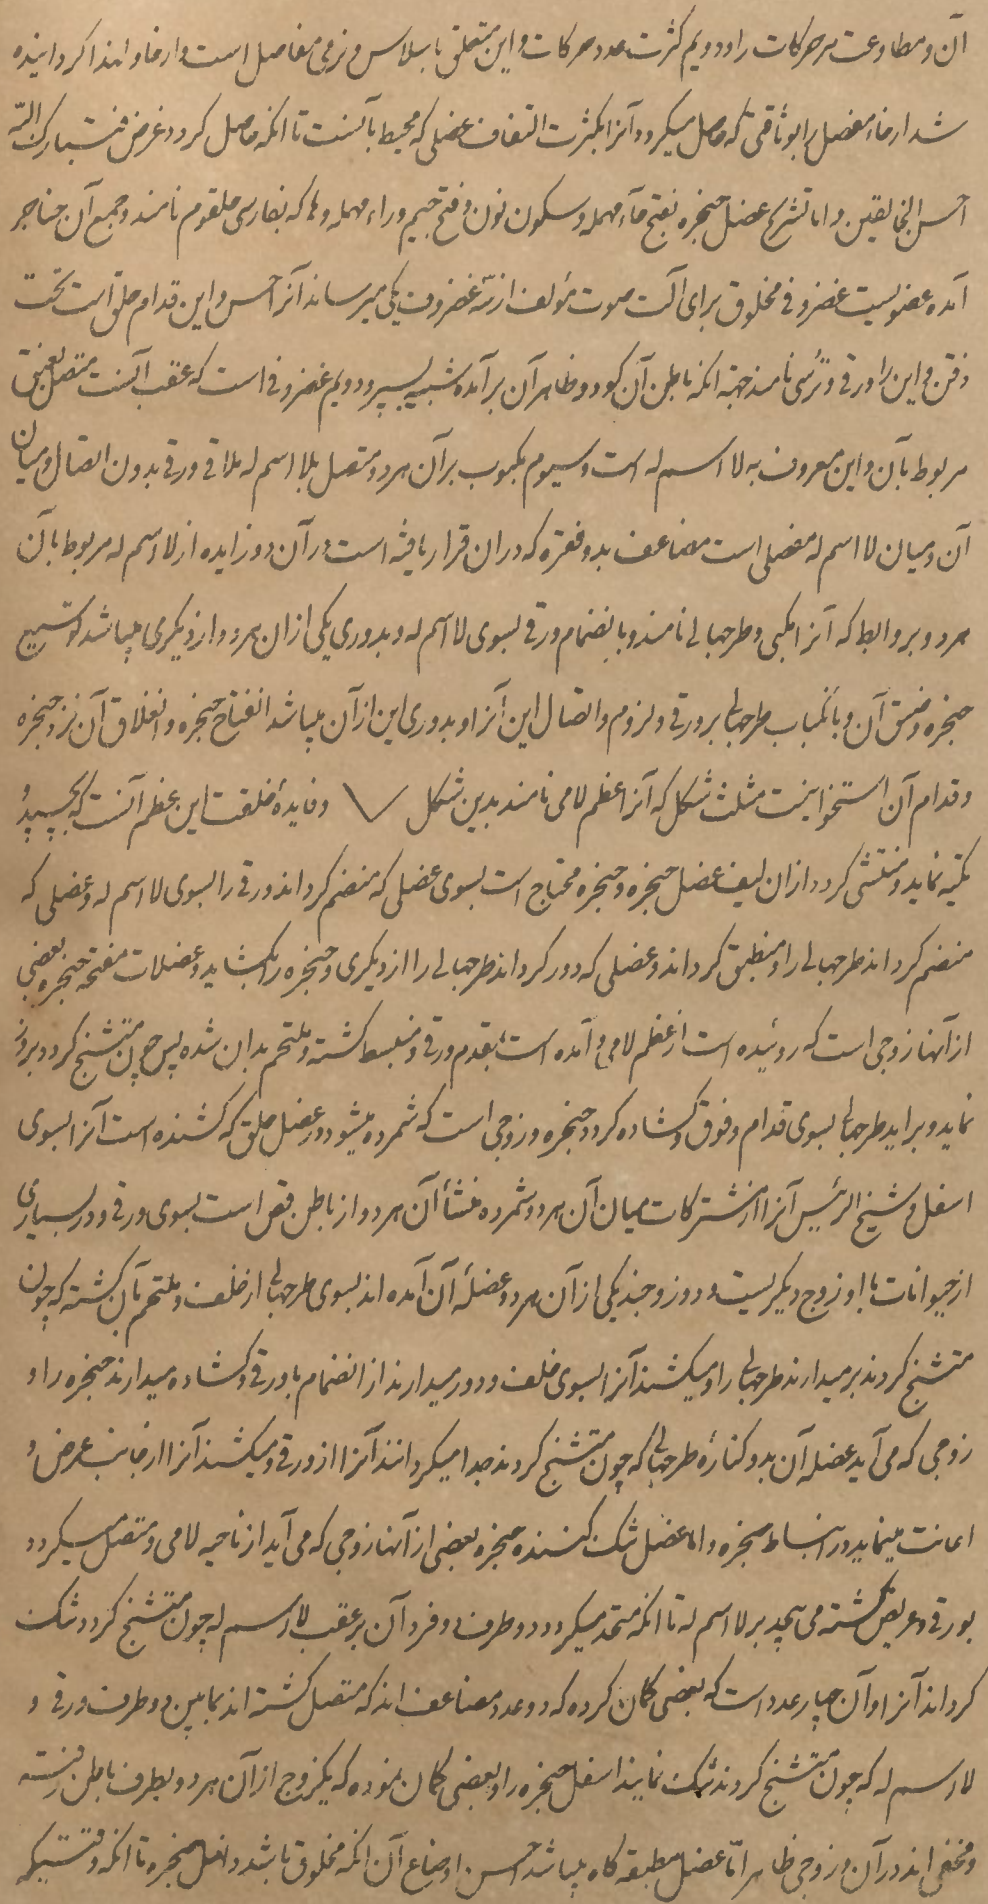 آن و مطاوعت مر حرکات را و دویم کثرت عدد حرکات و این متعلق باسلاس و نرمی مفاصل است و ارخا و لهذا کردانیده
شد ارخاء مفصل را بوثاقتی که حاصل میکردد آنرا بکثرت التفاف عضلی که محیط بآنست تا انکه حاصل کردد غرض فتبارک الله
احسن الخالقین و اما تشریح عضل حنجره بفتح حاء مهمله و سکون نون و فتح جیم و راء مهمله و ها که بفارسی حلقوم نامند و جمع آن حناجر
آمده عضویست غضروفی مخلوق برای آلت صوت مؤلف از سه غضروف یکی میرساند آنرا حس و این قدام حلق است تحت
ذقن و این را درقی و ترسی نامند جهة انکه باطن آن کود و ظاهر آن برآمده شبیه بسپر و دویم غضروفی است که عقب آنست متصل بعنق
مربوط بآن و این معروف به لا اسم له است و سیوم مکبوب بر آن هر دو متصل بلا اسم له ملاقی درقی بدون اتصال و میان
آن و میان لا اسم له مفصلی است مضاعف بدو فقره که دران قرار یافته است در آن دو زایده از لا اسم له مربوط بآن
هر دو بروابط که آنرا مکبی و طرجهالی نامند و بانضمام درقی بسوی لا اسم له و بدوری یکی ازان هر دو از دیکری میباشد توسیع
حنجره و ضیق آن و بانکباب طرجهالی بر درقی و لزوم و اتصال این آنرا و بدوری این از آن میباشد انفتاح حنجره و انغلاق آن و نزد حنجره
و قدام آن استخوانیست مثلث شکل که آنرا عظم لامی نامند بدین شکل \/ و فایدهٔ خلقت این عظم آنست که بچسپد و
تکیه نماید و منتشی کردد ازان لیف عضل حنجره و حنجره محتاج است بسوی عضلی که منضم کرداند درقی را بسوی لا اسم له و عضلی که
منضم کرداند طرجهالی را و منطبق کرداند و عضلی که دور کرداند طرجهالی را از دیکری و حنجره را بکشاید و عضلات مفتحه حنجره بعضی
از آنها زوجی است که روئیده است از عظم لامی و آمده است بقدم درقی و منبسط کشته و ملتحم بدان شده پس چون متشنج کردد بروز
نماید و براید طرجهالی بسوی قدام و فوق و کشاده کردد حنجره و زوجی است که شمرده میشود در عضل حلق که کشنده است آنرا بسوی
اسفل و شیخ الرئیس آنرا از مشترکات میان آن هر دو شمرده منشأ آن هر دو از باطن قص است بسوی درقی و در بسیاری
از حیوانات با او زوج دیکریست و دو زوجند یکی از آن هر دو عضلهٔ آن آمده اند بسوی طرجهالی از خلف و ملتحم بآن کشته که چون
متشنج کردند بر میدارند طرجهالی را و میکشند آنرا بسوی خلف و دور میدارند از انضمام با درقی و کشاده میدارند حنجره را و
زوجی که می آید عضله آن بدو کنارهٔ طرجهالی که چون متشنج کردند جدا میکردانند آنرا از درقی و میکشند آنرا از جانب عرض و
اعانت مینماید در انبساط حنجره و اما عضل تنک کننده حنجره بعضی از آنها زوجی که می آید از ناحیه لامی و متصل میکردد
بدرقی و عریض کشته می پیچد بر لا اسم له تا انکه متحد میکردد دو طرف دو فرد آن بر عقب لا اسم له چون متشنج کردد تنک
کرداند آنرا و آن چهار عدد است که بعضی کمان کرده که دو عدد مضاعف اند که متصل کشته اند بمابین دو طرف درقی و
لا اسم له که چون متشنج کردند تنک نمایند اسفل حنجره را و بعضی کمان نموده که یکزوج از آن هر دو بطرف باطن رفته
و مخفی اند در آن و زوجی ظاهر امّا عضل مطبقه کاه میباشد احسن اوضاع آن انکه مخلوق باشد داخل حنجره تا انکه وقتیکه